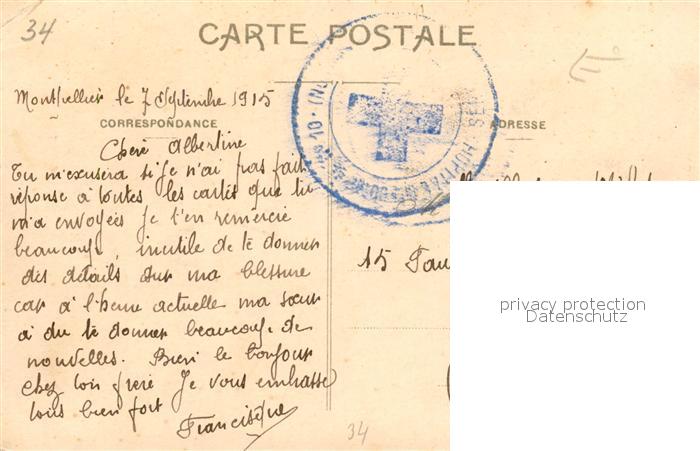 34
CARTE POSTALE
Montpellier le 7 Septembre 1915
CORRESPONDANCE
ADRESSE
Cheré Albertine
Tu m'excusera si je n'ai pas fait
réponse à toutes les cartes que tu
m'a envoyées Je t'en remercie
beaucoup, inutile de te donner
des détails sur ma blessure
car à l'heure actuelle ma sœur
a du te donner beaucoup de
nouvelles. Bien le bonjour
chez ton frere Je vous embrasse
tous bien fort
Francisque
34
15
privacy protection
Datenschutz